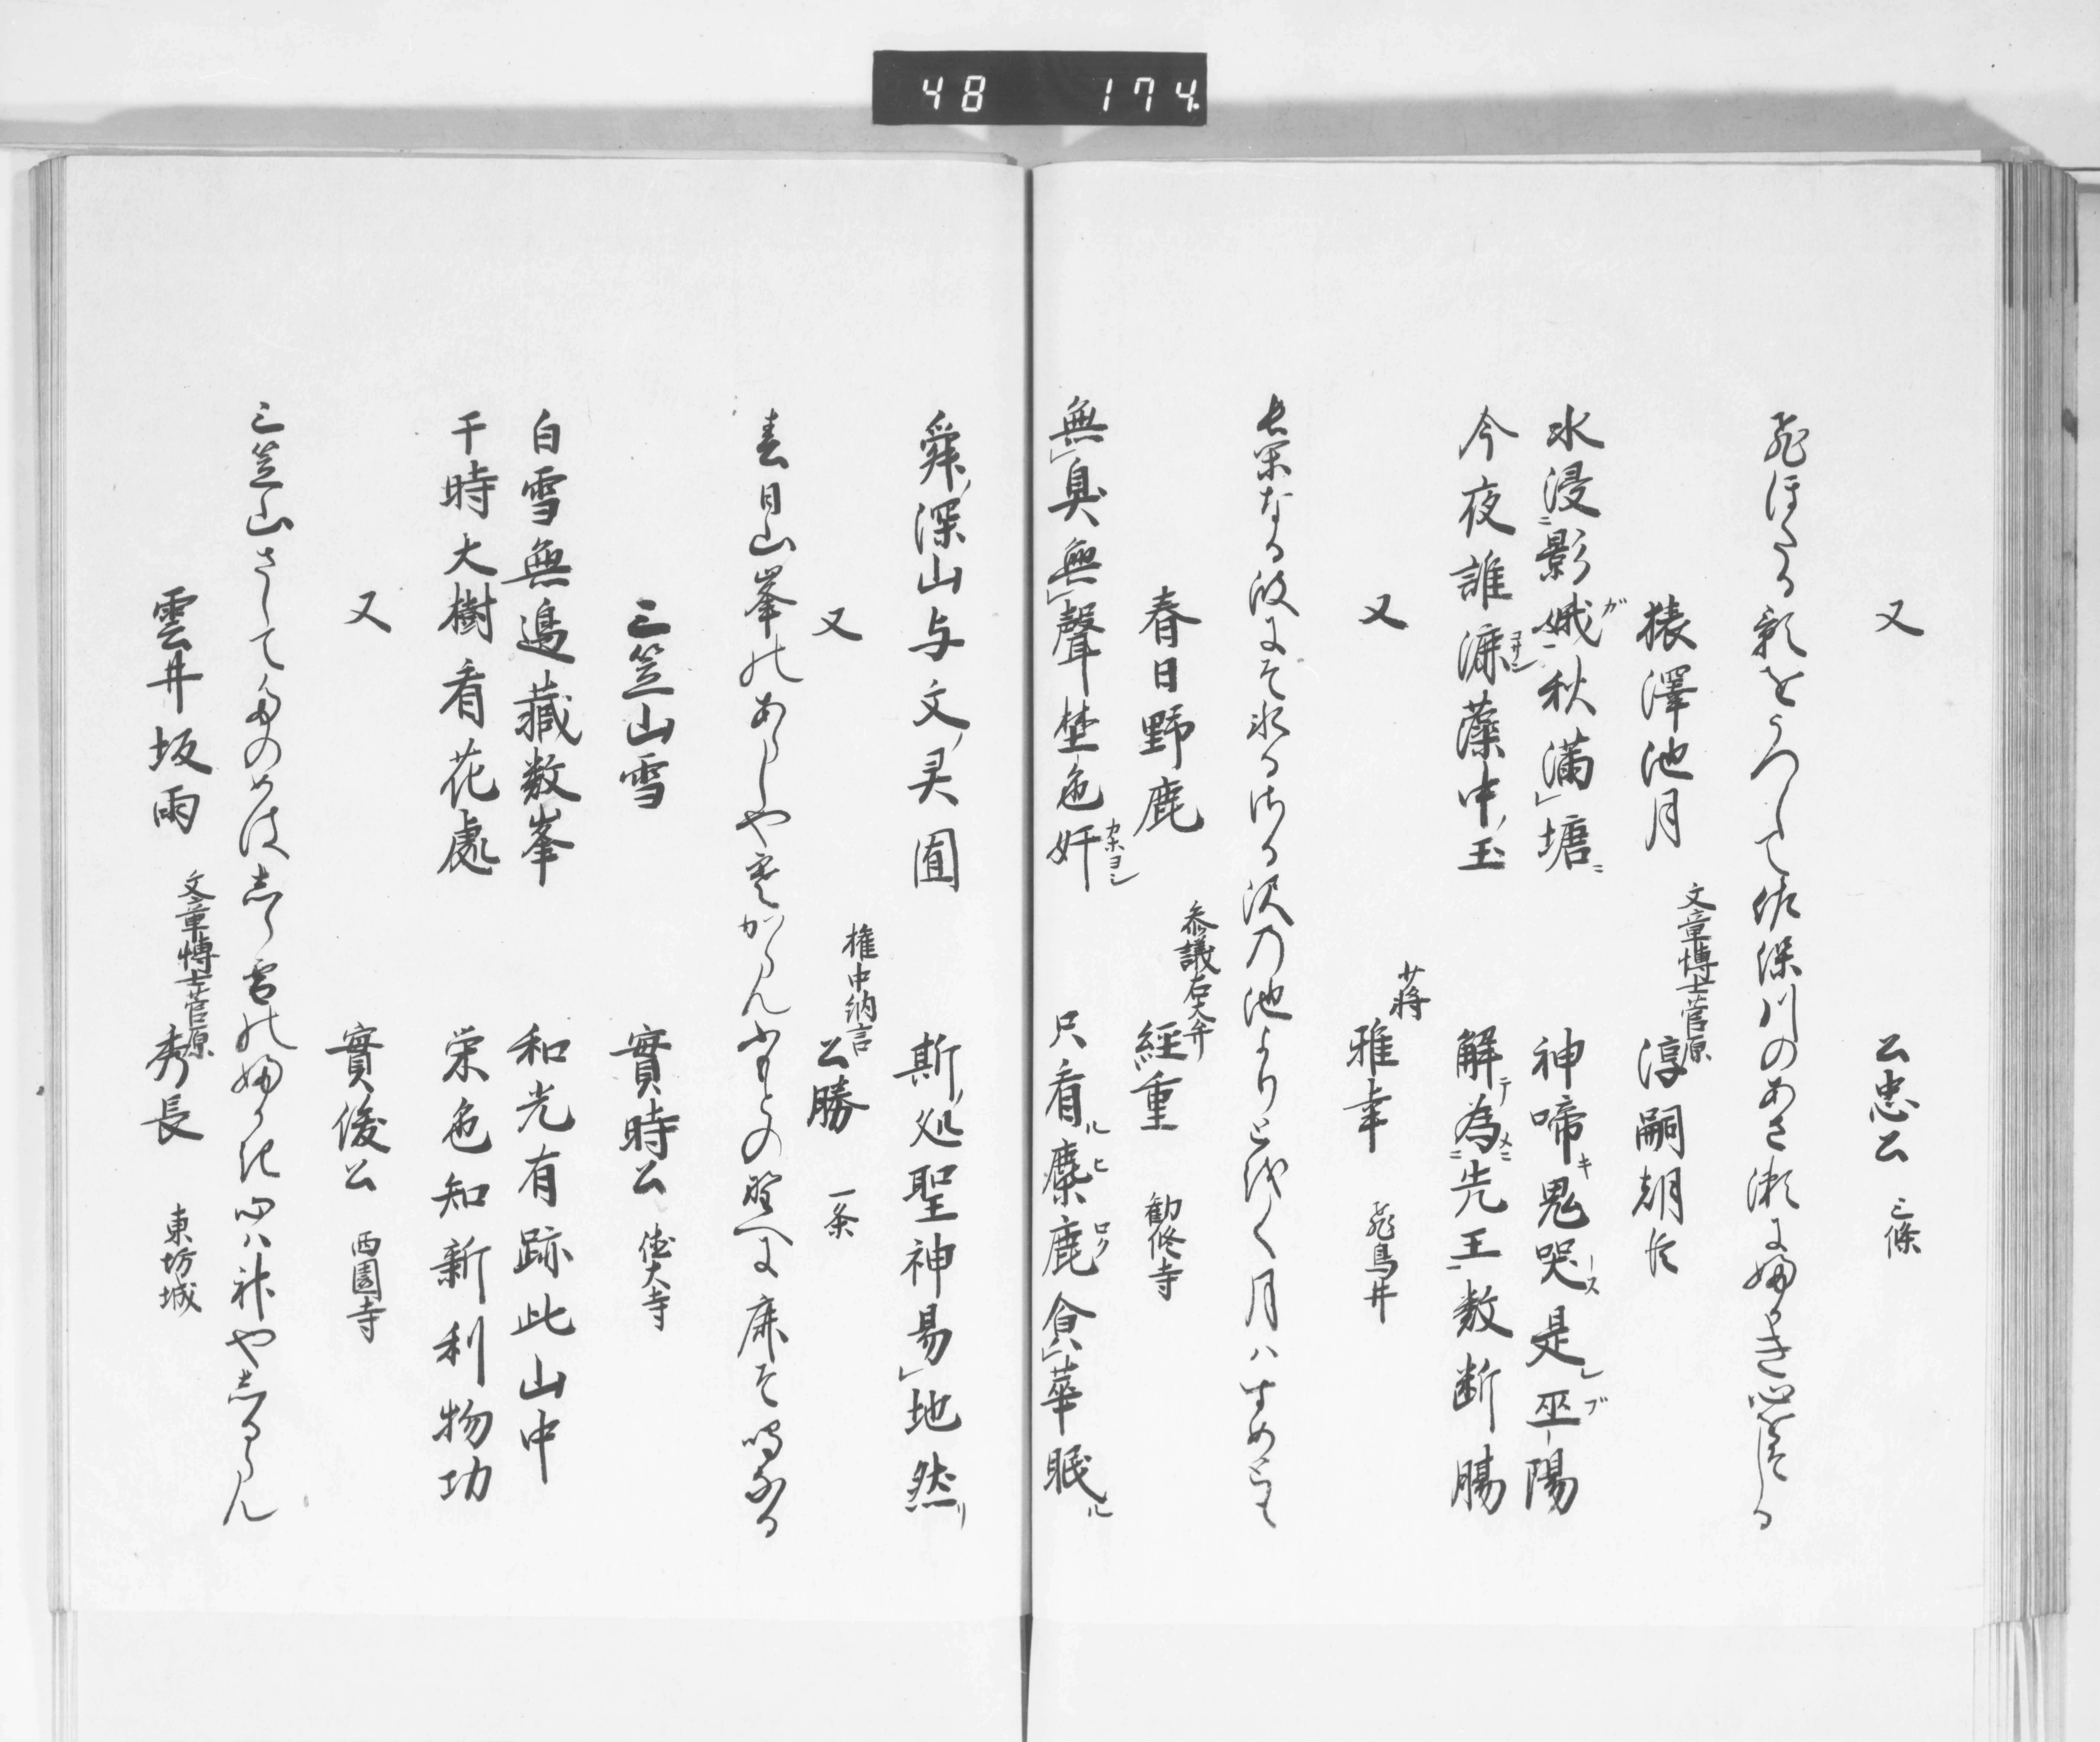 48 174
又 公忠公 三條
飛ほたる影をうつして佐保川のあさ瀬にふかき心をそしる
猿澤池月 文章博士菅原 淳嗣朝臣
水浸影娥秋満塘 神啼鬼哭是巫陽
今夜誰漉藻中玉 解為先王数断膓
又 蒋 雅幸 飛鳥井
長閑なる波にそ氷るさる沢乃池よりとをく月ハすめとも
春日野鹿 参議右大弁 經重 勧修寺
無臭無聲埜色奸 只看麋鹿食華眠
舜深山与文灵囿 斯処聖神易地然
又 権中納言 公勝 一条
春日山峯のあらしや寒からんふもとの野へに鹿そ鳴なる
三笠山雪 實時公 徳大寺
白雪無邉蔵数峯 和光有跡此山中
干時大樹看花處 栄色知新利物功
又 實俊公 西園寺
三笠山さしてたのめはしら雪のふかき心ハ神やしるらん
雲井坂雨 文章博士菅原 秀長 東坊城